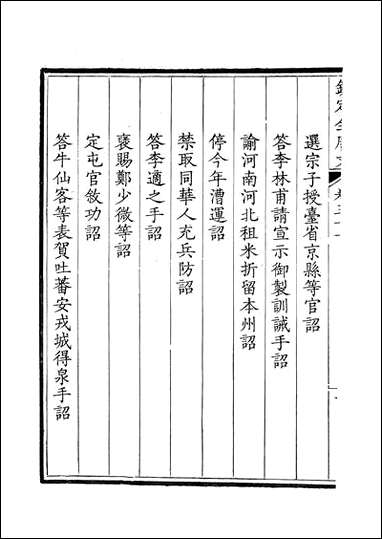 欽定全唐文
卷三十一
選宗子授臺省京縣等官詔
答李林甫請宣示御製訓誡手詔
諭河南河北租米折留本州詔
停今年漕運詔
禁取同華人充兵防詔
答李適之手詔
襃賜鄭少微等詔
定屯官敘功詔
答牛仙客等表賀吐蕃安戎城得泉手詔